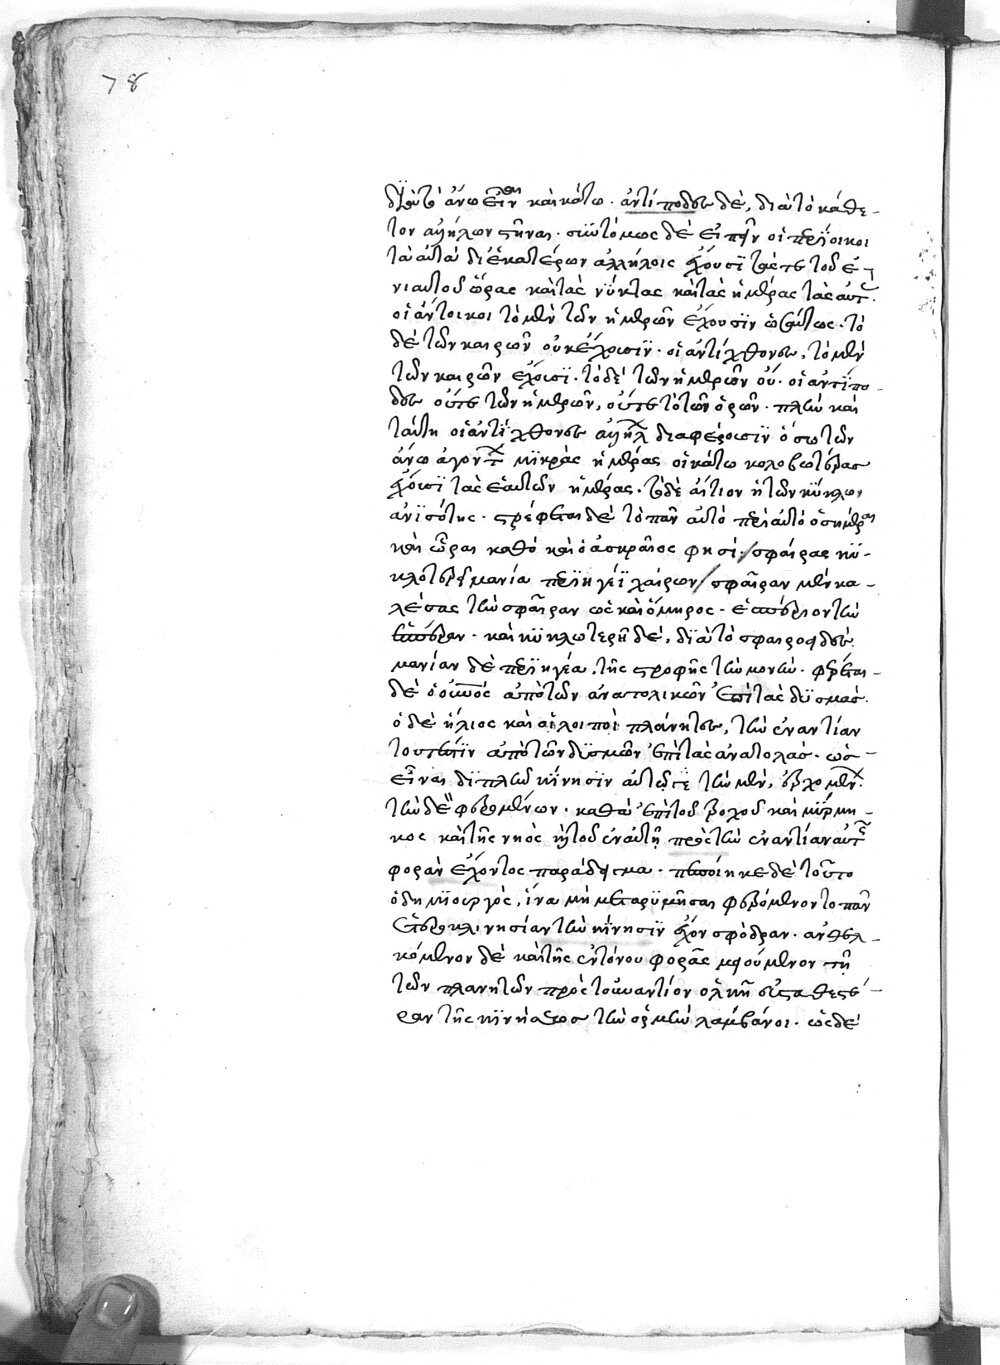 78
ἄνω εἶναι καὶ κάτω · ἀντίποδες δὲ, διὰ τὸ κάθε-
τον ἀλλήλων στῆναι · συντόμως δὲ εἰπεῖν οἱ περίοικοι
τὰ αὐτὰ δι ἑκατέρων ἀλλήλοις ἔχουσι τάς τε τοῦ ἐ-
νιαυτοῦ ὥρας καὶ τὰς νύκτας καὶ τὰς ἡμέρας τὰς αὐτ
οἱ ἄντοικοι τὸ μὲν τῶν ἡμερῶν ἔχουσιν ὡσαύτως · τὸ
δὲ τῶν καιρῶν οὐκ ἔχουσιν · οἱ ἀντίχθονες, τὸ μὲν
τῶν καιρῶν ἔχουσι · τὸ δὲ τῶν ἡμερῶν οὔ · οἱ ἀντίπο-
δες οὔτε τῶν ἡμερῶν, οὔτε τὸ τῶν ὁρῶν · πλὴν καὶ
ταύτη οἱ ἀντίχθονες ἀλλήλ διαφέρουσιν ὅσω τῶν
ἄνω ἀγοντ μικρὰς ἡμέρας οἱ κάτω κολοβωτέρας
ἔχουσι τὰς ἑαυτῶν ἡμέρας · τὸ δὲ αἴτιον ἡ τῶν κύκλων
ἀνισότης · στρέφεται δὲ τὸ πᾶν αὐτὸ περὶ αὑτὸ ὁσημέραι
καὶ ὧραι καθὸ καὶ ὁ ἀσκραῖος φησί · / σφαίρας κυ-
κλοτερεῖ μανία περιηγέϊ χαίρων / σφαῖραν μὲν κα-
λέσας τὴν σφαῖραν ὡς καὶ ὅμηρος · ἑσπέριον τὴν
ἑσπέραν · καὶ κυκλωτερῆ δὲ, διὰ τὸ σφαιροειδές
μανίαν δὲ περιηγέα, τῆς στροφῆς τὴν μονὴν · φέρεται
δὲ ὁ οὐνὸς ἀπὸ τῶν ἀνατολικῶν ἐπὶ τὰς δυσμάς
ὁ δὲ ἥλιος καὶ οἱ λοιποὶ πλάνητες, τὴν ἐναντίαν
τουτέστιν ἀπὸ τῶν δυσμῶν ἐπὶ τὰς ἀνατολάς · ὡς
εἶναι διπλῆν κίνησιν αὐτῶν τὴν μὲν, ἐρχομεν
τὴν δὲ φερομένων · καθὼ ἐπὶ τοῦ τροχοῦ καὶ μύρμη-
κος καὶ τῆς νηὸς ἢ τοῦ ἐν αὐτῇ πρὸς τὴν ἐναντίαν αὐτῆς
φορὰν ἔχοντος παράδειγμα · πεποίηκε δὲ τοῦτο
ὁ δημιουργὸς, ἵνα μὴ μεταρυμῆσαι φερόμενον τὸ πᾶν
ἑτεροκλινησίαν τὴν κίνησιν ἔχον σφόδραν · ἀνθελ-
κόμενον δὲ καὶ τῆς ἐντόνου φορᾶς μειούμενον τῇ
τῶν πλανητῶν πρὸς τοὐναντίον ὁλκῇ εὐσταθεστέ-
ραν τῆς κινήσεως τὴν ὁρμὴν λαμβάνοι · ὡς δὲ